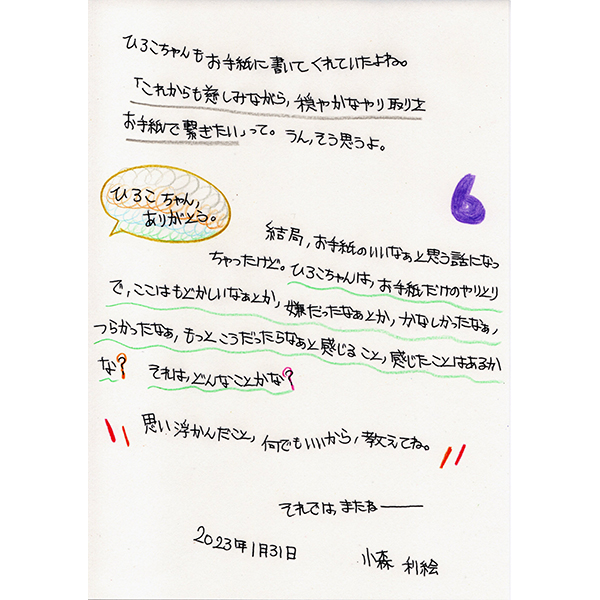 ひろこちゃんもお手紙に書いてくれていたよね。
「これからも慈しみながら,穏やかなやり取りを
お手紙で繋ぎたい」って。うん,そう思うよ。
ひろこちゃん,
ありがとう。
6
結局,お手紙のいいなぁと思う話になっ
ちゃったけど。ひろこちゃんは,お手紙だけのやりとり
で,ここはもどかしいなぁとか,嫌だったなぁとか,かなしかったなぁ,
つらかったなぁ,もっとこうだったらなぁと感じること,感じたことはあるか
な?それは,どんなことかな?
"思い浮かんだこと,何でもいいから,教えてね。"
それでは,またねー
2023年1月31日 小森 利絵